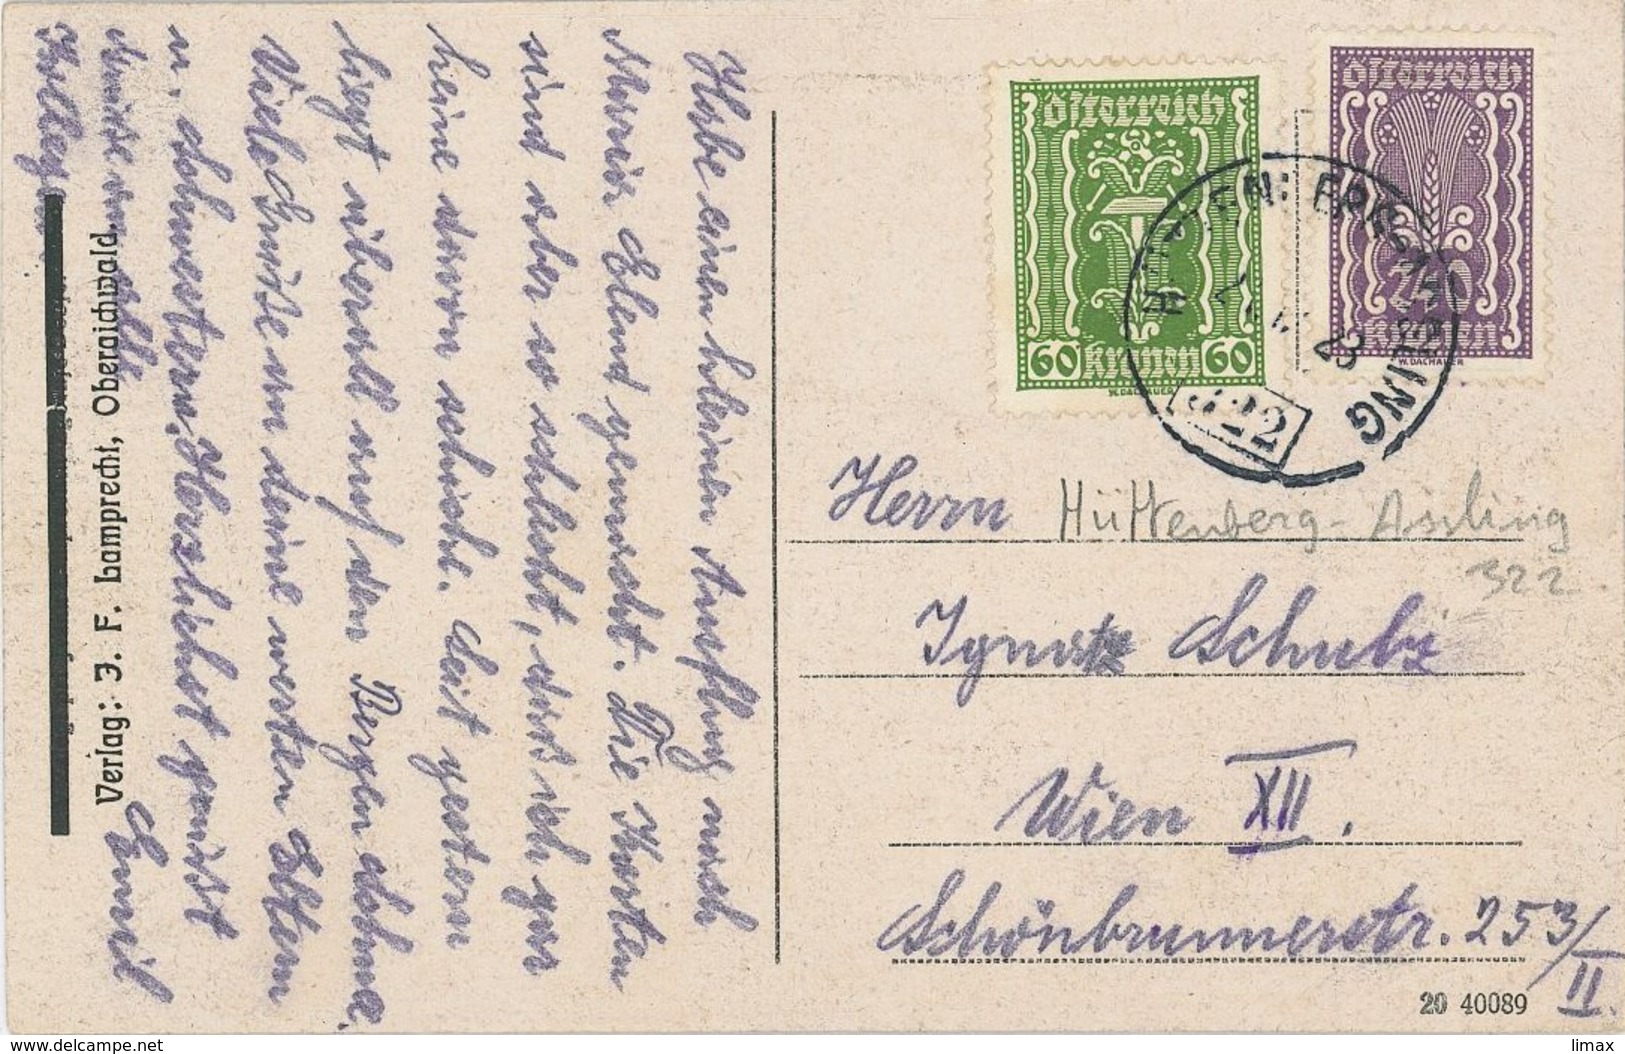 Habe einen kleinen Ausflug nach
Maria Elend gemacht. Die Karten
sind aber so schlecht, dass ich gar
keine davon schicke. Seit gestern
liegt überall auf den Bergen Schnee.
Viele Grüße an deine werten Eltern
u. Schwestern. Herzlichst grüßt
Emil
Verlag: J. F. Lamprecht, Oberaichwald.
Österreich
60 Kronen 60
W. DACHAUER
Österreich
250
Kronen
W. DACHAUER
23
322
Herrn
Hüttenberg-Assling
322
Ignatz Schulz
Wien XII.
Schönbrunnerstr. 253/
II.
20 40089
www.delcampe.net
limax